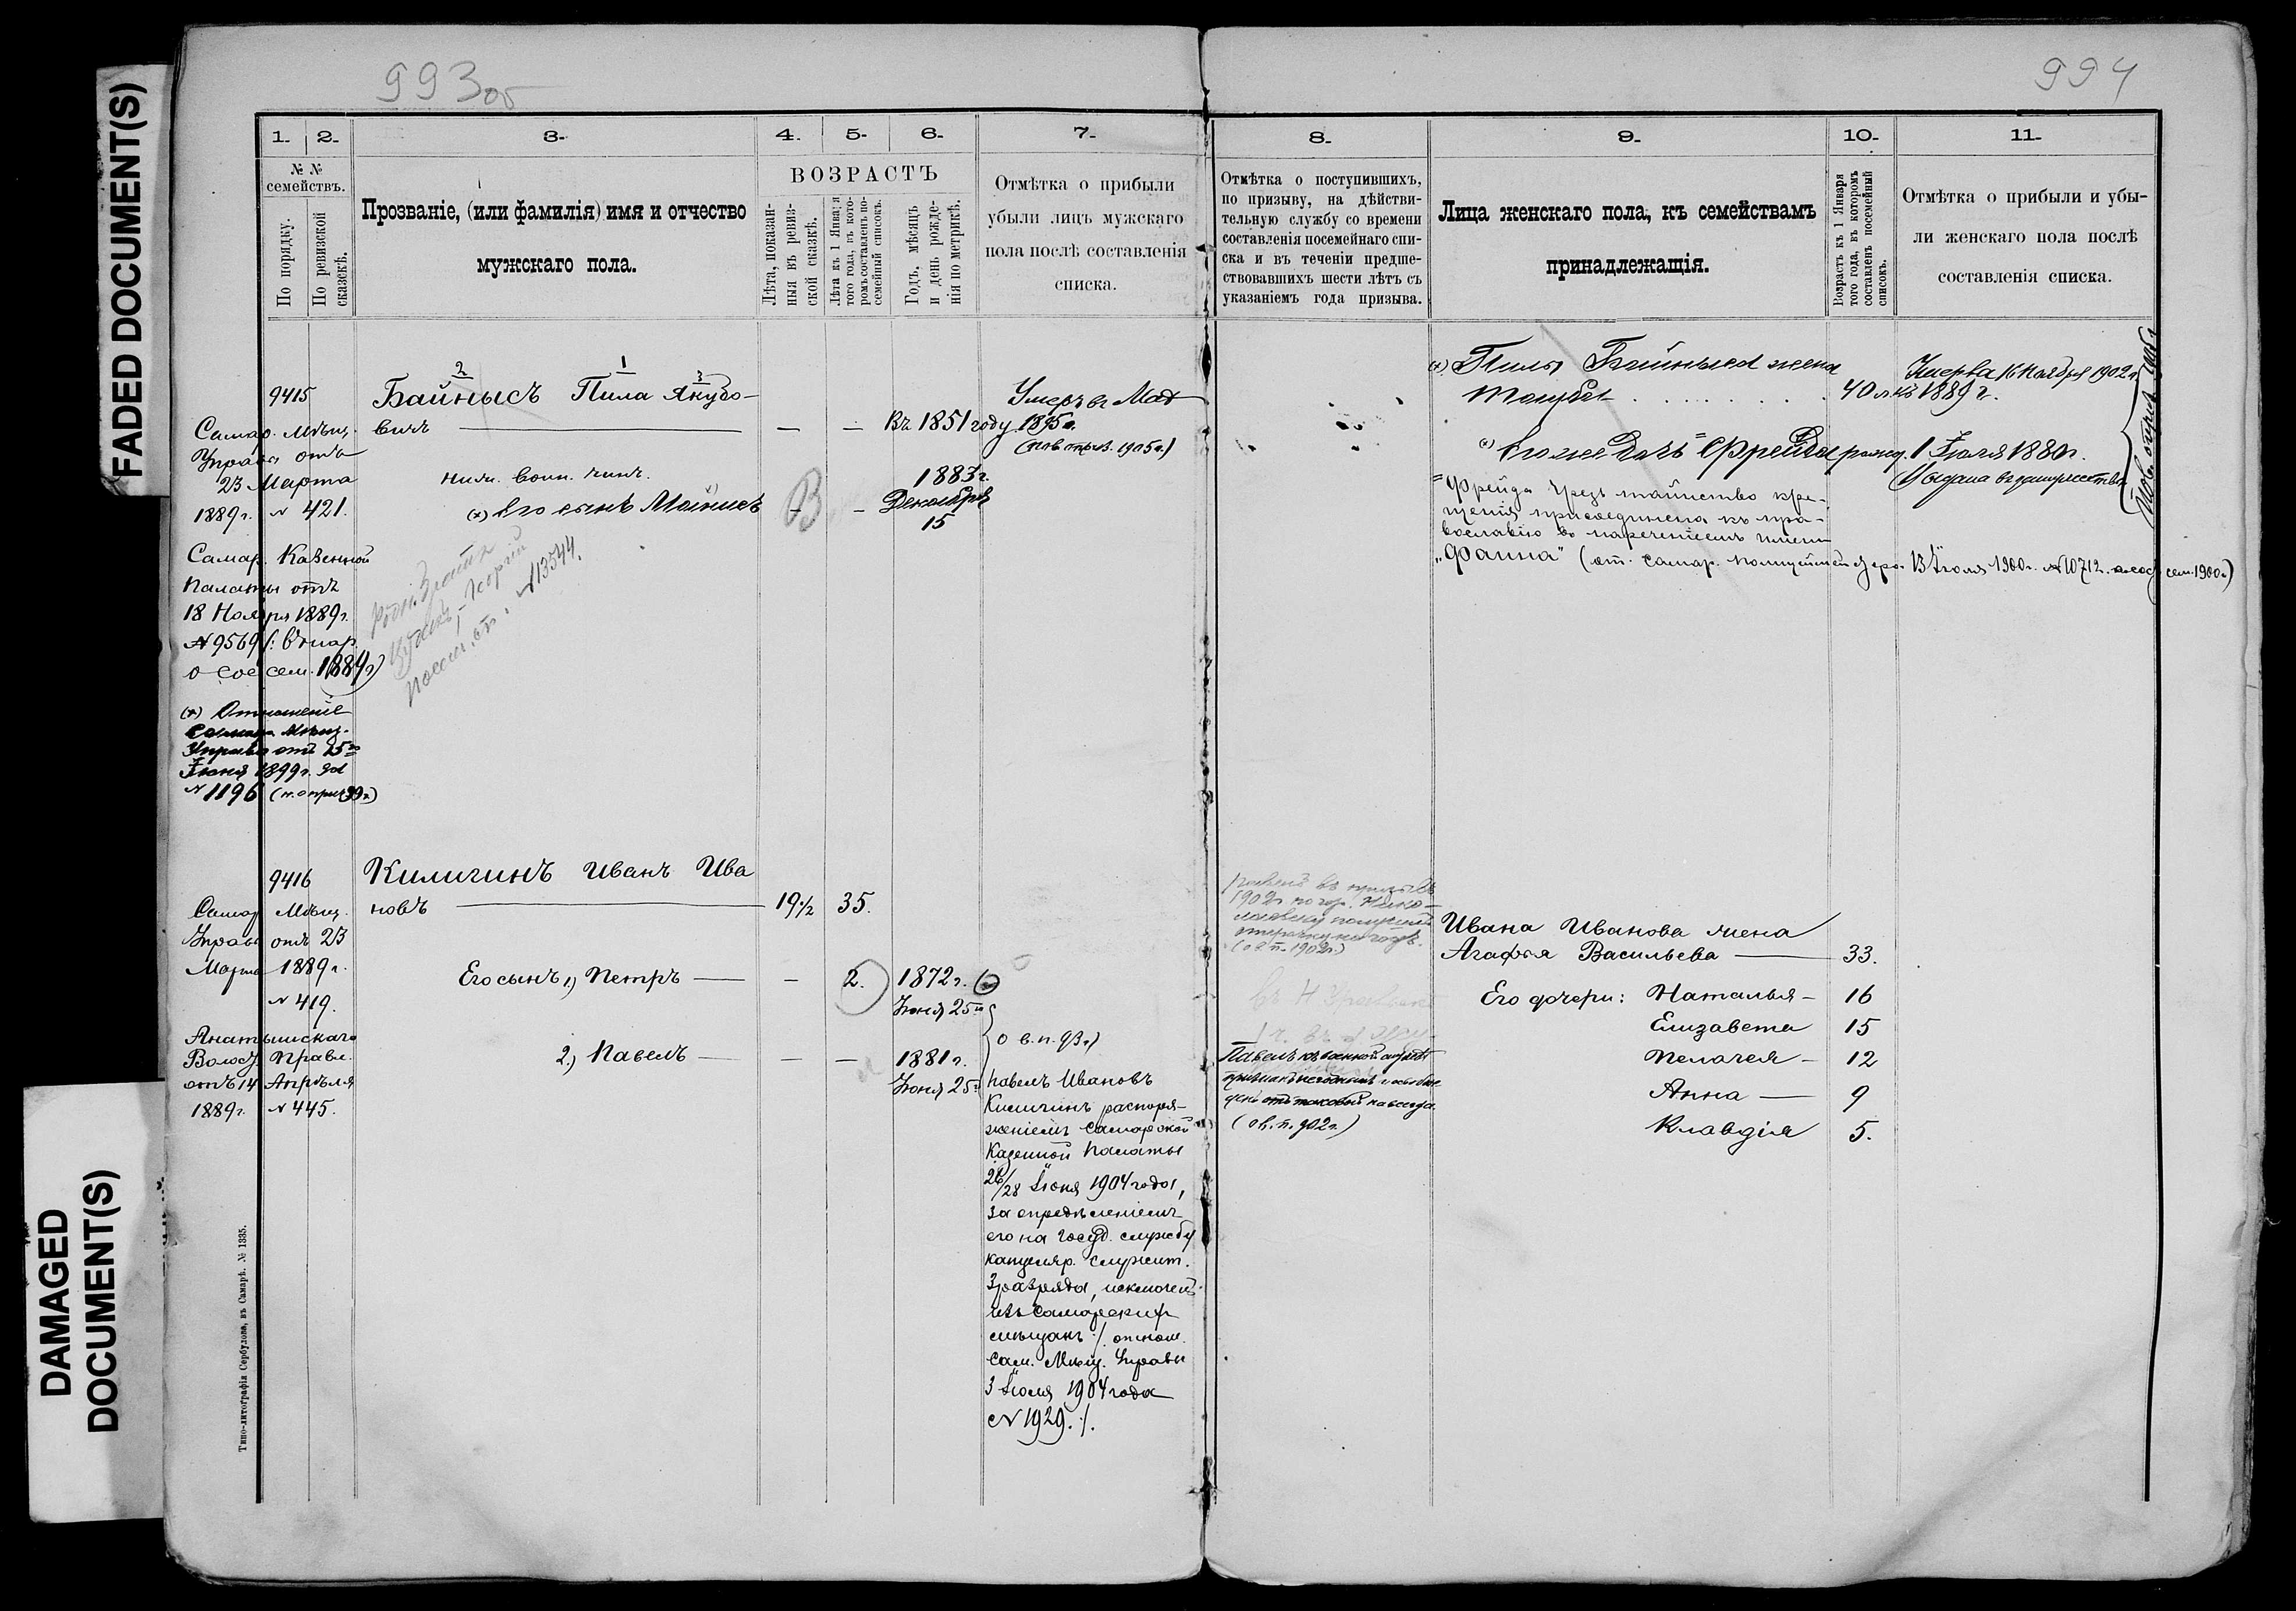 FADED DOCUMENT(S)
DAMAGED
DOCUMENT(S)
993об
994
1.
2.
3.
4.
5.
6.
7.
8.
9.
10.
11.
№ №
семействъ.
По порядку.
По ревизской
сказкѣ.
Прозваніе, (или фамилія) имя и отчество
мужскаго пола.
ВОЗРАСТЪ
Лѣта, показан-
ныя въ ревиз-
ской сказкѣ.
Лѣта къ 1 Января
того года, въ кото-
ромъ составленъ по-
семейный списокъ.
Годъ, мѣсяцъ
и день рожде-
нія по метрикѣ.
Отмѣтка о прибыли
убыли лицъ мужскаго
пола послѣ составленія
списка.
Отмѣтка о поступившихъ,
по призыву, на дѣйстви-
тельную службу со времени
составленія посемейнаго спи-
ска и въ теченіи предше-
ствовавшихъ шести лѣтъ съ
указаніемъ года призыва.
Лица женскаго пола, къ семействамъ
принадлежащія.
Возрастъ къ 1 Января
того года, въ которомъ
составленъ посемейный
списокъ.
Отмѣтка о прибыли и убы-
ли женскаго пола послѣ
составленія списка.
9415
2 1 3
Байнысъ Пила Якубо-
вичъ — — Въ 1851 году
Самар. Мѣщ.
Управы отъ
23 Марта
1889 г. № 421.
Самар. Казенной
Палаты отъ
18 Ноября 1889 г.
№ 9569
о сос сем. 1889 г)
(х) Отношеніе
Самар. Мѣщ.
Управы отъ 15го
Іюня 1899 г. за
№ 1196
ниж. воин. чинъ.
(х) его сынъ — — 1883 г.
Декабря
15
В
№ 13544.
Умеръ въ Мат
1895 г.
1905 г.)
(х) Пилы Байныса жена
40 л. къ 1889 г.
Умерла 16 Ноября 1902 г.
(х) его же дочь = Фрейда рожд. 1 Іюля 1880 г.
Выдана въ замужество
= Фрейда чрезъ таинство кре-
щенія присоединена къ пра-
вославію съ нареченіемъ имени
„Фаина" (от. Самар. Полицеймейстера 13 Іюля 1900 г. № 10712. о сос. сем. 1900 г)
9416
Киличинъ Иванъ Ива
новъ — 19½ 35.
Самар. Мѣщ.
Управы отъ 23
Марта 1889 г.
№ 419.
Волост. Правл.
отъ 14 Апрѣля
1889 г. № 445.
Его сынъ 1,) Петръ — — 2. 1872 г.
Іюня 25го
о в.п. 93 г)
2,) Павелъ — — — 1881 г.
Іюня 25го
Павелъ Ивановъ
Киличинъ распоря-
женіемъ Самарской
Казенной Палаты
26/28 Іюня 1904 года,
за опредѣленіемъ
его на госуд. службу
канцеляр. служит.
3 разряда, исключенъ
изъ Самарскихъ
мѣщанъ /. отнош.
Сам. Мѣщ. Управы
3 Іюля 1904 года
№ 1929. /.
1902 г по гор. Нико-
лаевску получилъ
отсрочку на годъ.
(о в п. 1902 г.)
Павелъ къ военной службѣ
признанъ негоднымъ и освобож-
денъ отъ таковой навсегда.
(о в. п. 902 г.)
Ивана Иванова жена
Агафья Васильева — 33.
Его дочери: Наталья — 16
Елизавета 15
Пелагея — 12
Анна — 9
Клавдія 5.
Типо-литографія Сербулова, въ Самарѣ. № 1335.